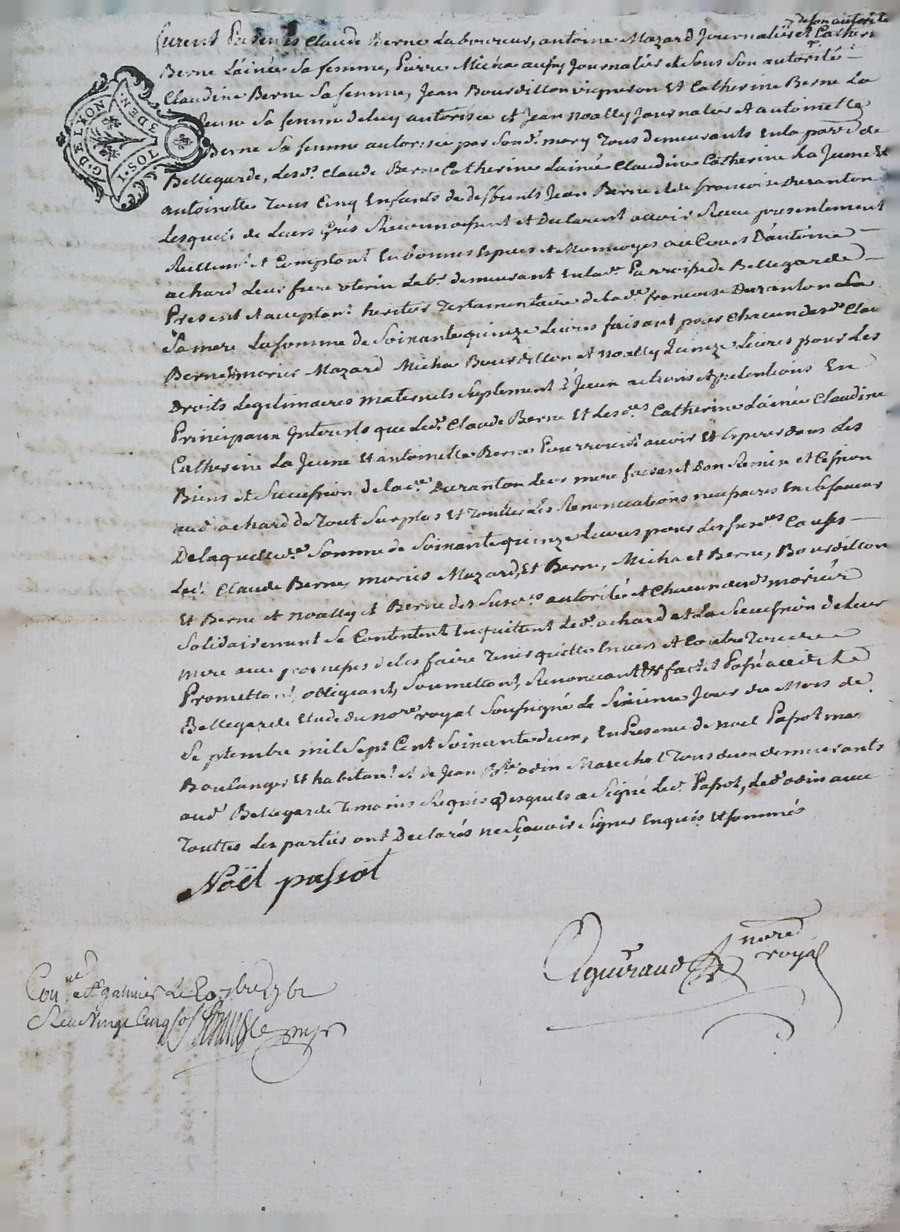 de son autorité
furent présents Claude Berne laboureur, antoine Mazard Journalier et Catherine
Berne Lainée sa femme, Pierre Micha aussy Journalier et sous son autorité
Claudine Berne sa femme, Jean Bourdillon vigneron et Catherine Berne La
Jeune sa femme deluy autorisée et Jean Noally Journalier et antoinette
Berne sa femme autorisée par sond. mary Tous demeurants en la parsse de
Bellegarde, Lesd. Claude Berne Catherine Lainée Claudine Catherine La Jeune et
antoinette Tous Cinq Enfants de deffunts Jean Berne et de francoise Duranton
Lesquels de Leurs grés Reconnoissent et Declarent avoir Receu presentement
Reellemt. et Comptant En bonnes Espèces et Monnoyes au Cours D'antoine
achard Leur frere uterin Labr. demeurant En lad. Parroisse de Bellegarde
Present et acceptant heritier Testamentaire de lad. francoise Duranton sa
mere La somme de soixante quinze Livres faisant pour chacun desd.
Berne mariés Mazard Micha Bourdillon et Noally quinze Livres pour Les
Droits Legitimaires maternels suplement d'Iceux actions et pretentions En
Principaux Interests que Led. Claude Berne Et Lesd. Catherine Lainée Claudine
Catherine La Jeune Et antoinette Berne Pourroient avoir Et Esperer dans Les
Biens et Succession de lad. Duranton Leur mere faisant Don Remise et Cession
aud. achard de Tout surplus Et Touttes Les Renonciations necessaires En sa faveur
De laquelle somme de soixante quinze Livres pour Les susd. Causes
Led. Claude Berne, mariés Mazard, Et Berne, Micha et Berne, Bourdillon
Et Berne et Noally et Berne des susd. autorités et Chacun desd. mariés
solidairement se Contentent En quittent Led. achard et La succession de Leur
mere avec promesses de les faire Tenir quittes Envers et Contre Tous
Promettant, obligeant, soumettant, Renonceant fait et Passé aud. Lieu
Bellegarde Etude du nore. royal soussigné Le sixieme Jour du Mois de
septembre mil sept Cent soixante deux, En Presence de noël Passot me
Boulanger Et habitant et de Jean Bte. odin Marechal Tous deux demeurants
aud. Bellegarde Temoins Requis desquels a signé Led. Passot, Led. odin avec
Touttes Les parties ont Declarés ne sçavoir signer Enquis Et sommés
Noël passot
nore
royal
a St galmier Le
Reçu Vingt Cinq sols
G. DE LYON
1. SOL.
3 DEN.